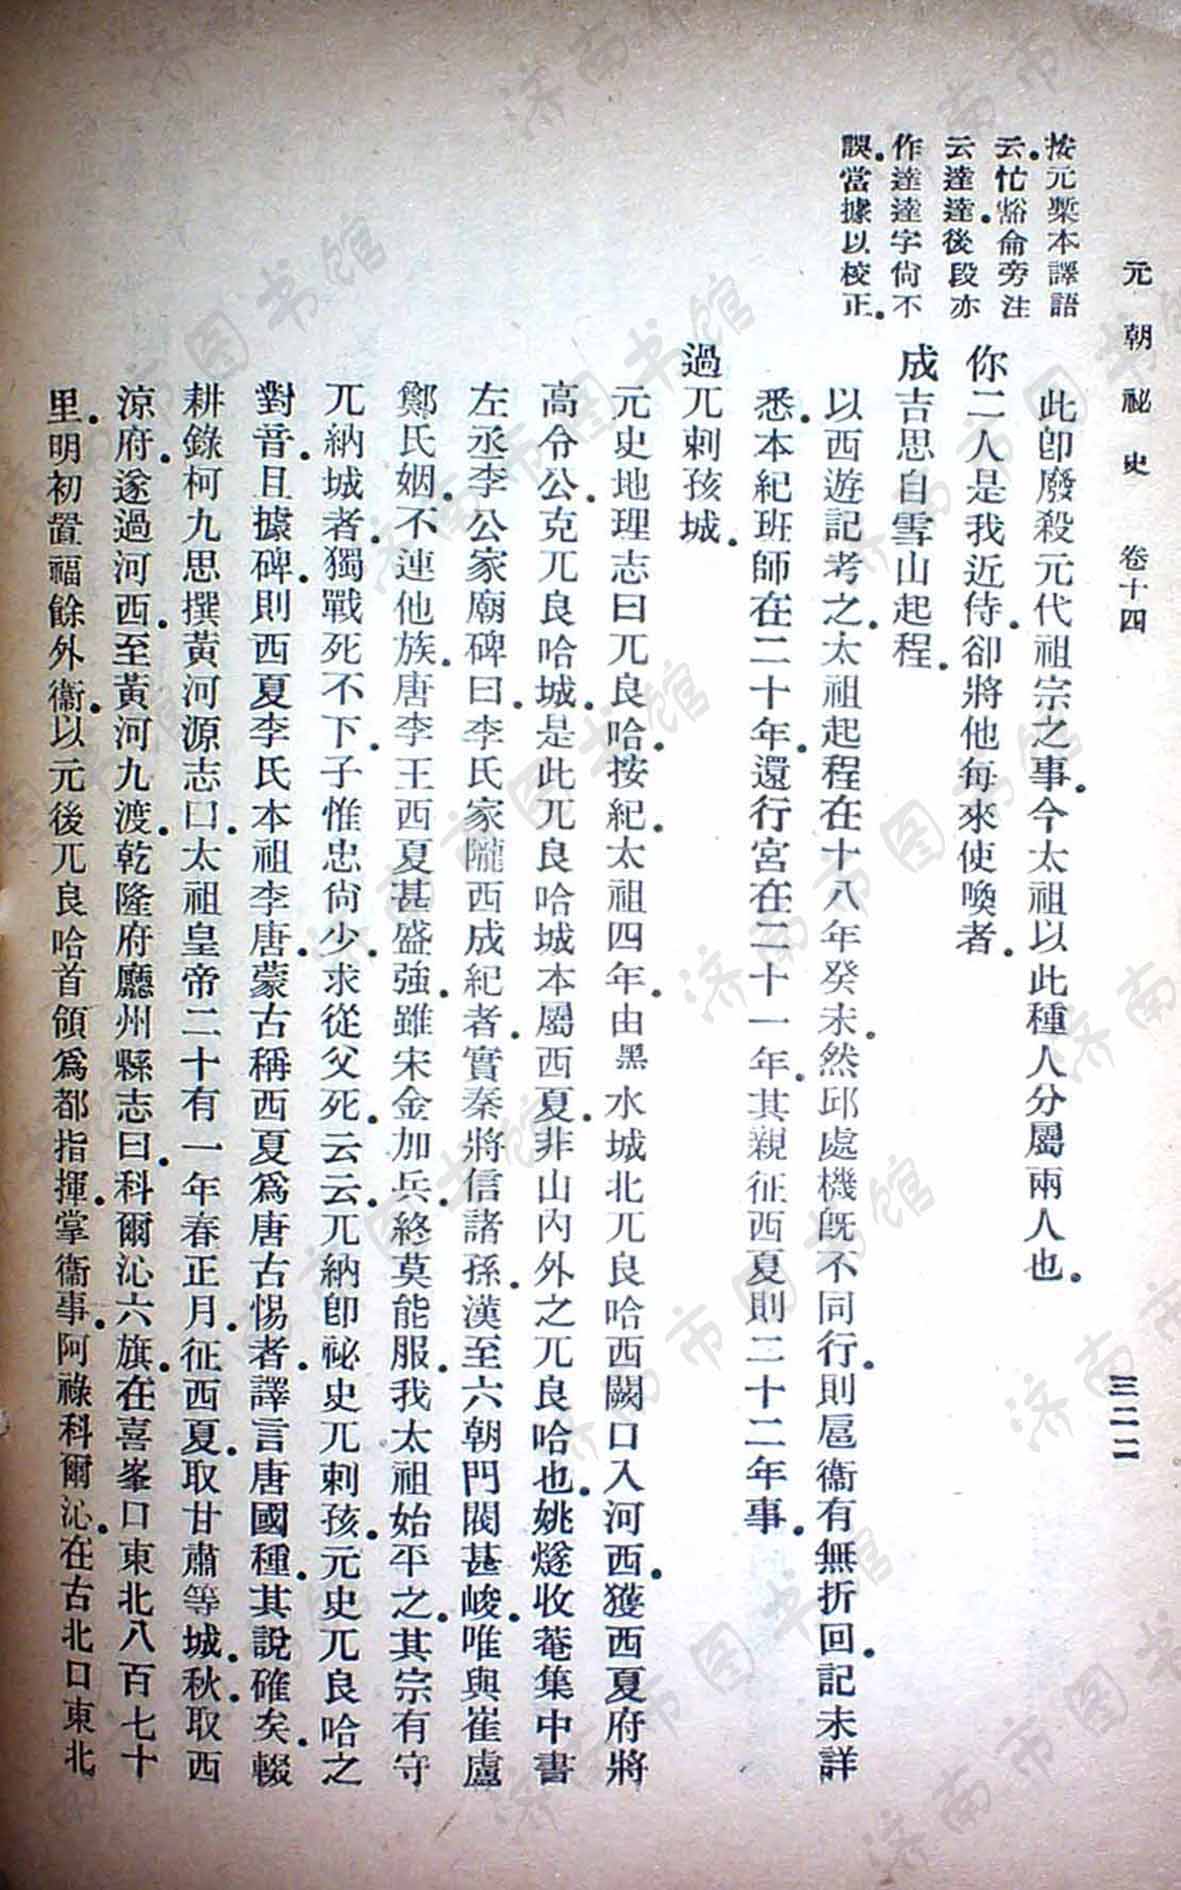 元朝祕史 卷十四 三二二
按元槧本譯語
云忙豁侖旁注
云達達後段亦
作達達字尙不
誤當據以校正
此卽廢殺元代祖宗之事今太祖以此種人分屬兩人也
你二人是我近侍卻將他每來使喚者
成吉思自雪山起程
以西遊記考之太祖起程在十八年癸未然邱處機旣不同行則扈衞有無折回記未詳
悉本紀班師在二十年還行宮在二十一年其親征西夏則二十二年事
過兀剌孩城
元史地理志曰兀良哈按紀太祖四年由黑水城北兀良哈西關口入河西獲西夏府將
高令公克兀良哈城是此兀良哈城本屬西夏非山內外之兀良哈也姚燧收菴集中書
左丞李公家廟碑曰李氏家隴西成紀者實秦將信諸孫漢至六朝門閥甚峻唯與崔盧
鄭氏姻不連他族唐李王西夏甚盛強雖宋金加兵終莫能服我太祖始平之其宗有守
兀納城者獨戰死不下子惟忠尙少求從父死云云兀納卽祕史兀剌孩元史兀良哈之
對音且據碑則西夏李氏本祖李唐蒙古稱西夏爲唐古惕者譯言唐國種其說確矣輟
耕錄柯九思撰黃河源志曰太祖皇帝二十有一年春正月征西夏取甘肅等城秋取西
涼府遂過河西至黃河九渡乾隆府廳州縣志曰科爾沁六旗在喜峯口東北八百七十
里明初置福餘外衞以元後兀良哈首領爲都指揮掌衞事阿祿科爾沁在古北口東北